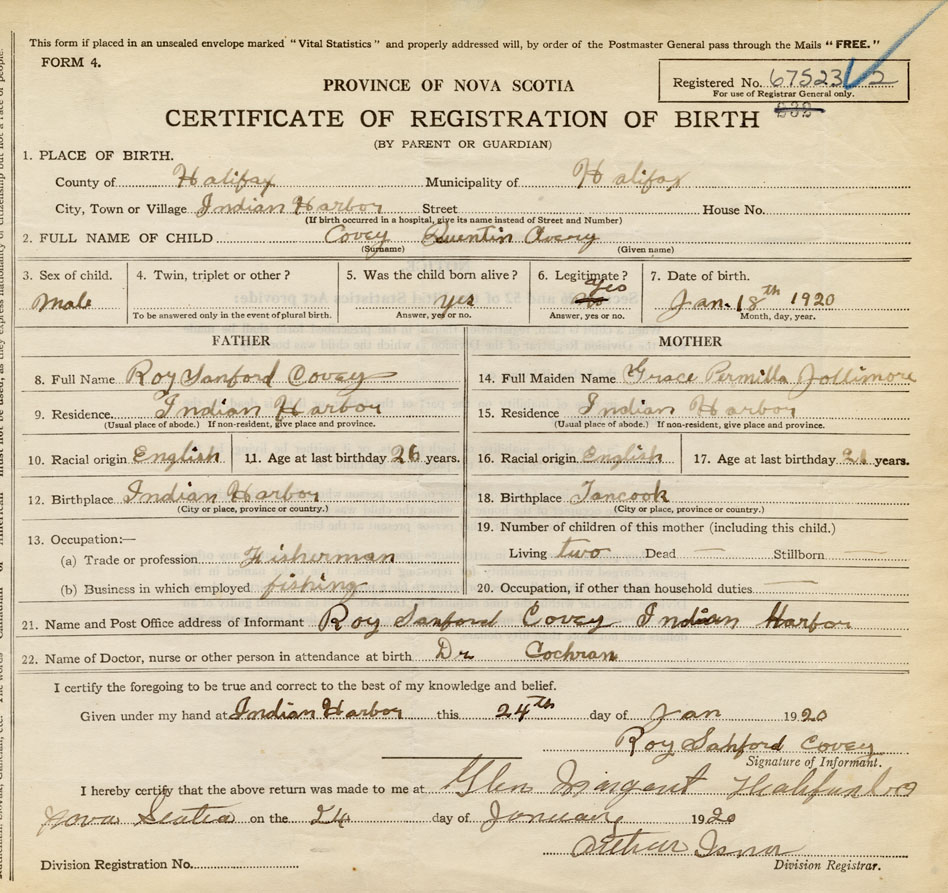 This form if placed in an unsealed envelope marked "Vital Statistics" and properly addressed will, by order of the Postmaster General pass through the Mails "FREE."
FORM 4.
PROVINCE OF NOVA SCOTIA
Registered No. 67523 2
For use of Registrar General only.
CERTIFICATE OF REGISTRATION OF BIRTH
(BY PARENT OR GUARDIAN)
1. PLACE OF BIRTH.
County of Halifax Municipality of Halifax
City, Town or Village Indian Harbor Street House No.
(If birth occurred in a hospital, give its name instead of Street and Number)
2. FULL NAME OF CHILD Covey Quentin Avery
(Surname) (Given name)
3. Sex of child. 4. Twin, triplet or other? 5. Was the child born alive? 6. Legitimate? 7. Date of birth.
Male yes Yes Jan. 18th 1920
To be answered only in the event of plural birth. Answer, yes or no. Answer, yes or no. Month, day, year.
FATHER MOTHER
8. Full Name Roy Sanford Covey 14. Full Maiden Name Grace Permilla Jollimore
9. Residence. Indian Harbor 15. Residence Indian Harbor
(Usual place of abode.) If non-resident, give place and province. (Usual place of abode.) If non-resident, give place and province.
10. Racial origin English 11. Age at last birthday 26 years. 16. Racial origin English 17. Age at last birthday 21 years.
12. Birthplace Indian Harbor 18. Birthplace Tancook
(City or place, province or country.) (City or place, province or country.)
13. Occupation:— 19. Number of children of this mother (including this child.)
(a) Trade or profession Fisherman Living two Dead — Stillborn —
(b) Business in which employed fishing 20. Occupation, if other than household duties —
21. Name and Post Office address of Informant Roy Sanford Covey Indian Harbor
22. Name of Doctor, nurse or other person in attendance at birth Dr Cochran
I certify the foregoing to be true and correct to the best of my knowledge and belief.
Given under my hand at Indian Harbor this 24th day of Jan 1920
Roy Sanford Covey
Signature of Informant.
I hereby certify that the above return was made to me at Glen Margaret Halifax Co
Nova Scotia on the 24 day of January 1920
Arthur
Division Registration No. Division Registrar.